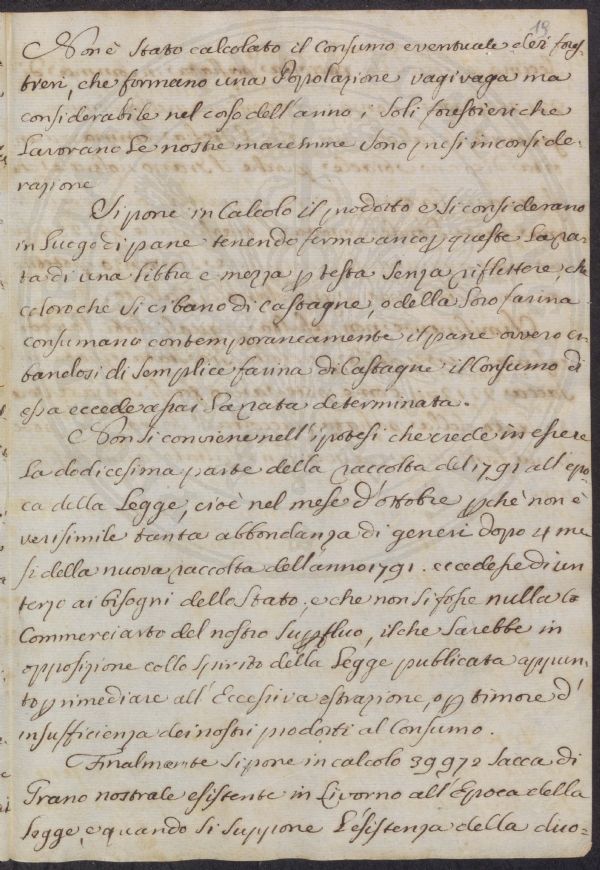 19
Non è stato calcolato il consumo eventuale dei fores-
tieri, che formano una Popolazione vagivaga ma
considerabile nel corso dell'anno; i soli forestieri che
Lavorano Le nostre maremme sono presi in conside-
razione
Si pone in Calcolo il prodotto e si considerano
in Luogo di pane tenendo ferma anco p queste La ra-
ta di una libbra e mezza p testa senza riflettere, che
coloro che si cibano di Castagne, o della Loro farina
consumano contemporaneamente il pane ovvero ci-
bandosi di semplice farina di Castagne il Consumo di
essa eccede assai La rata determinata.
Non si conviene nell'ipotesi che crede in essere
La dodicesima parte della raccolta del 1791 all'epo-
ca della Legge, cioè nel mese d'ottobre pchè non è
verisimile tanta abbondanza di generi dopo 4 me-
si della nuova raccolta dell'anno 1791. eccedesse di un
terzo ai bisogni dello Stato, e che non si fosse nulla
Commerciato del nostro supfluo, il che sarebbe in
opposizione collo spirito della Legge publicata appun-
to p rimediare all'Eccessiva estrazione, o p timore d'
insufficienza dei nostri prodotti al Consumo.
Finalmente si pone in calcolo 39972 sacca di
Grano nostrale esistente in Livorno all'Epoca della
Legge, e quando si suppone L'esistenza della duo-